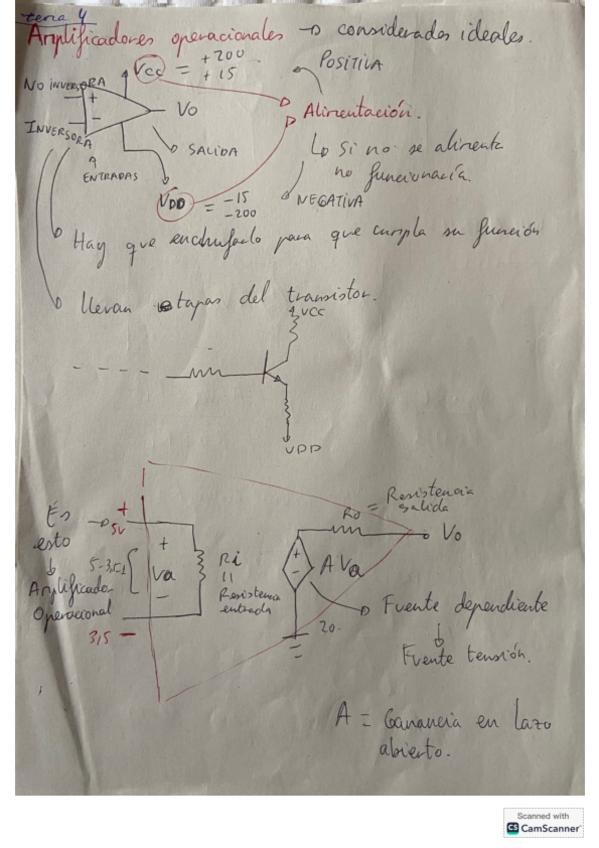 tema 4
Amplificadores operacionales → considerados ideales.
Vcc = +200
+15
POSITIVA
NO INVERSORA
+
Vo
Alimentación.
INVERSORA
-
SALIDA
ENTRADAS
Si no se alimenta
no funcionaría.
VDD = -15
-200
NEGATIVA
Hay que enchufarlo para que cumpla su función
llevan etapas del transistor.
VCC
VDD
Ro = Resistencia
salida
Es
esto
Amplificador
Operacional
+
5v
+
Va
-
Ri
=
Resistencia
entrada
+
-
A Va
Vo
3,5 -
20.
Fuente dependiente
Fuente tensión.
A = Ganancia en lazo
abierto.
Scanned with
CS CamScanner